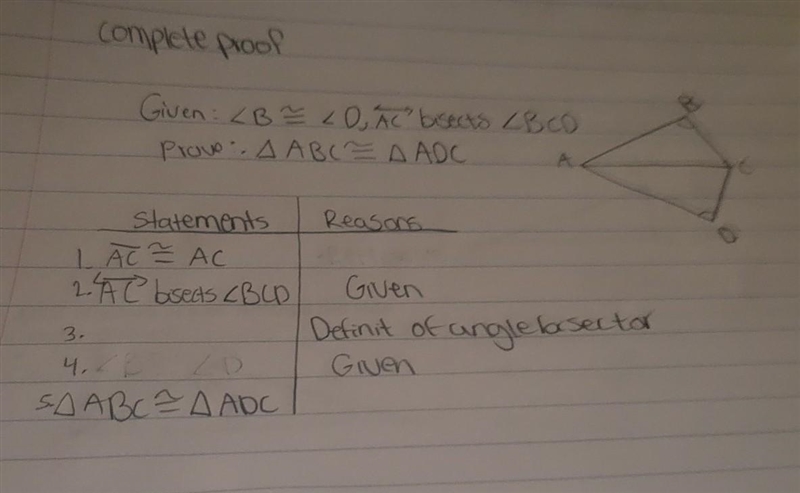 Complete proof
Given: ∠B ≅ ∠D, AC bisects ∠BCD
Prove: △ ABC ≅ △ ADC
B
A
C
D
Statements Reasons
1. AC ≅ AC
2. AC bisects ∠BCD Given
3. Definit of angle bisector
4. ∠B ∠D Given
5. △ ABC ≅ △ ADC